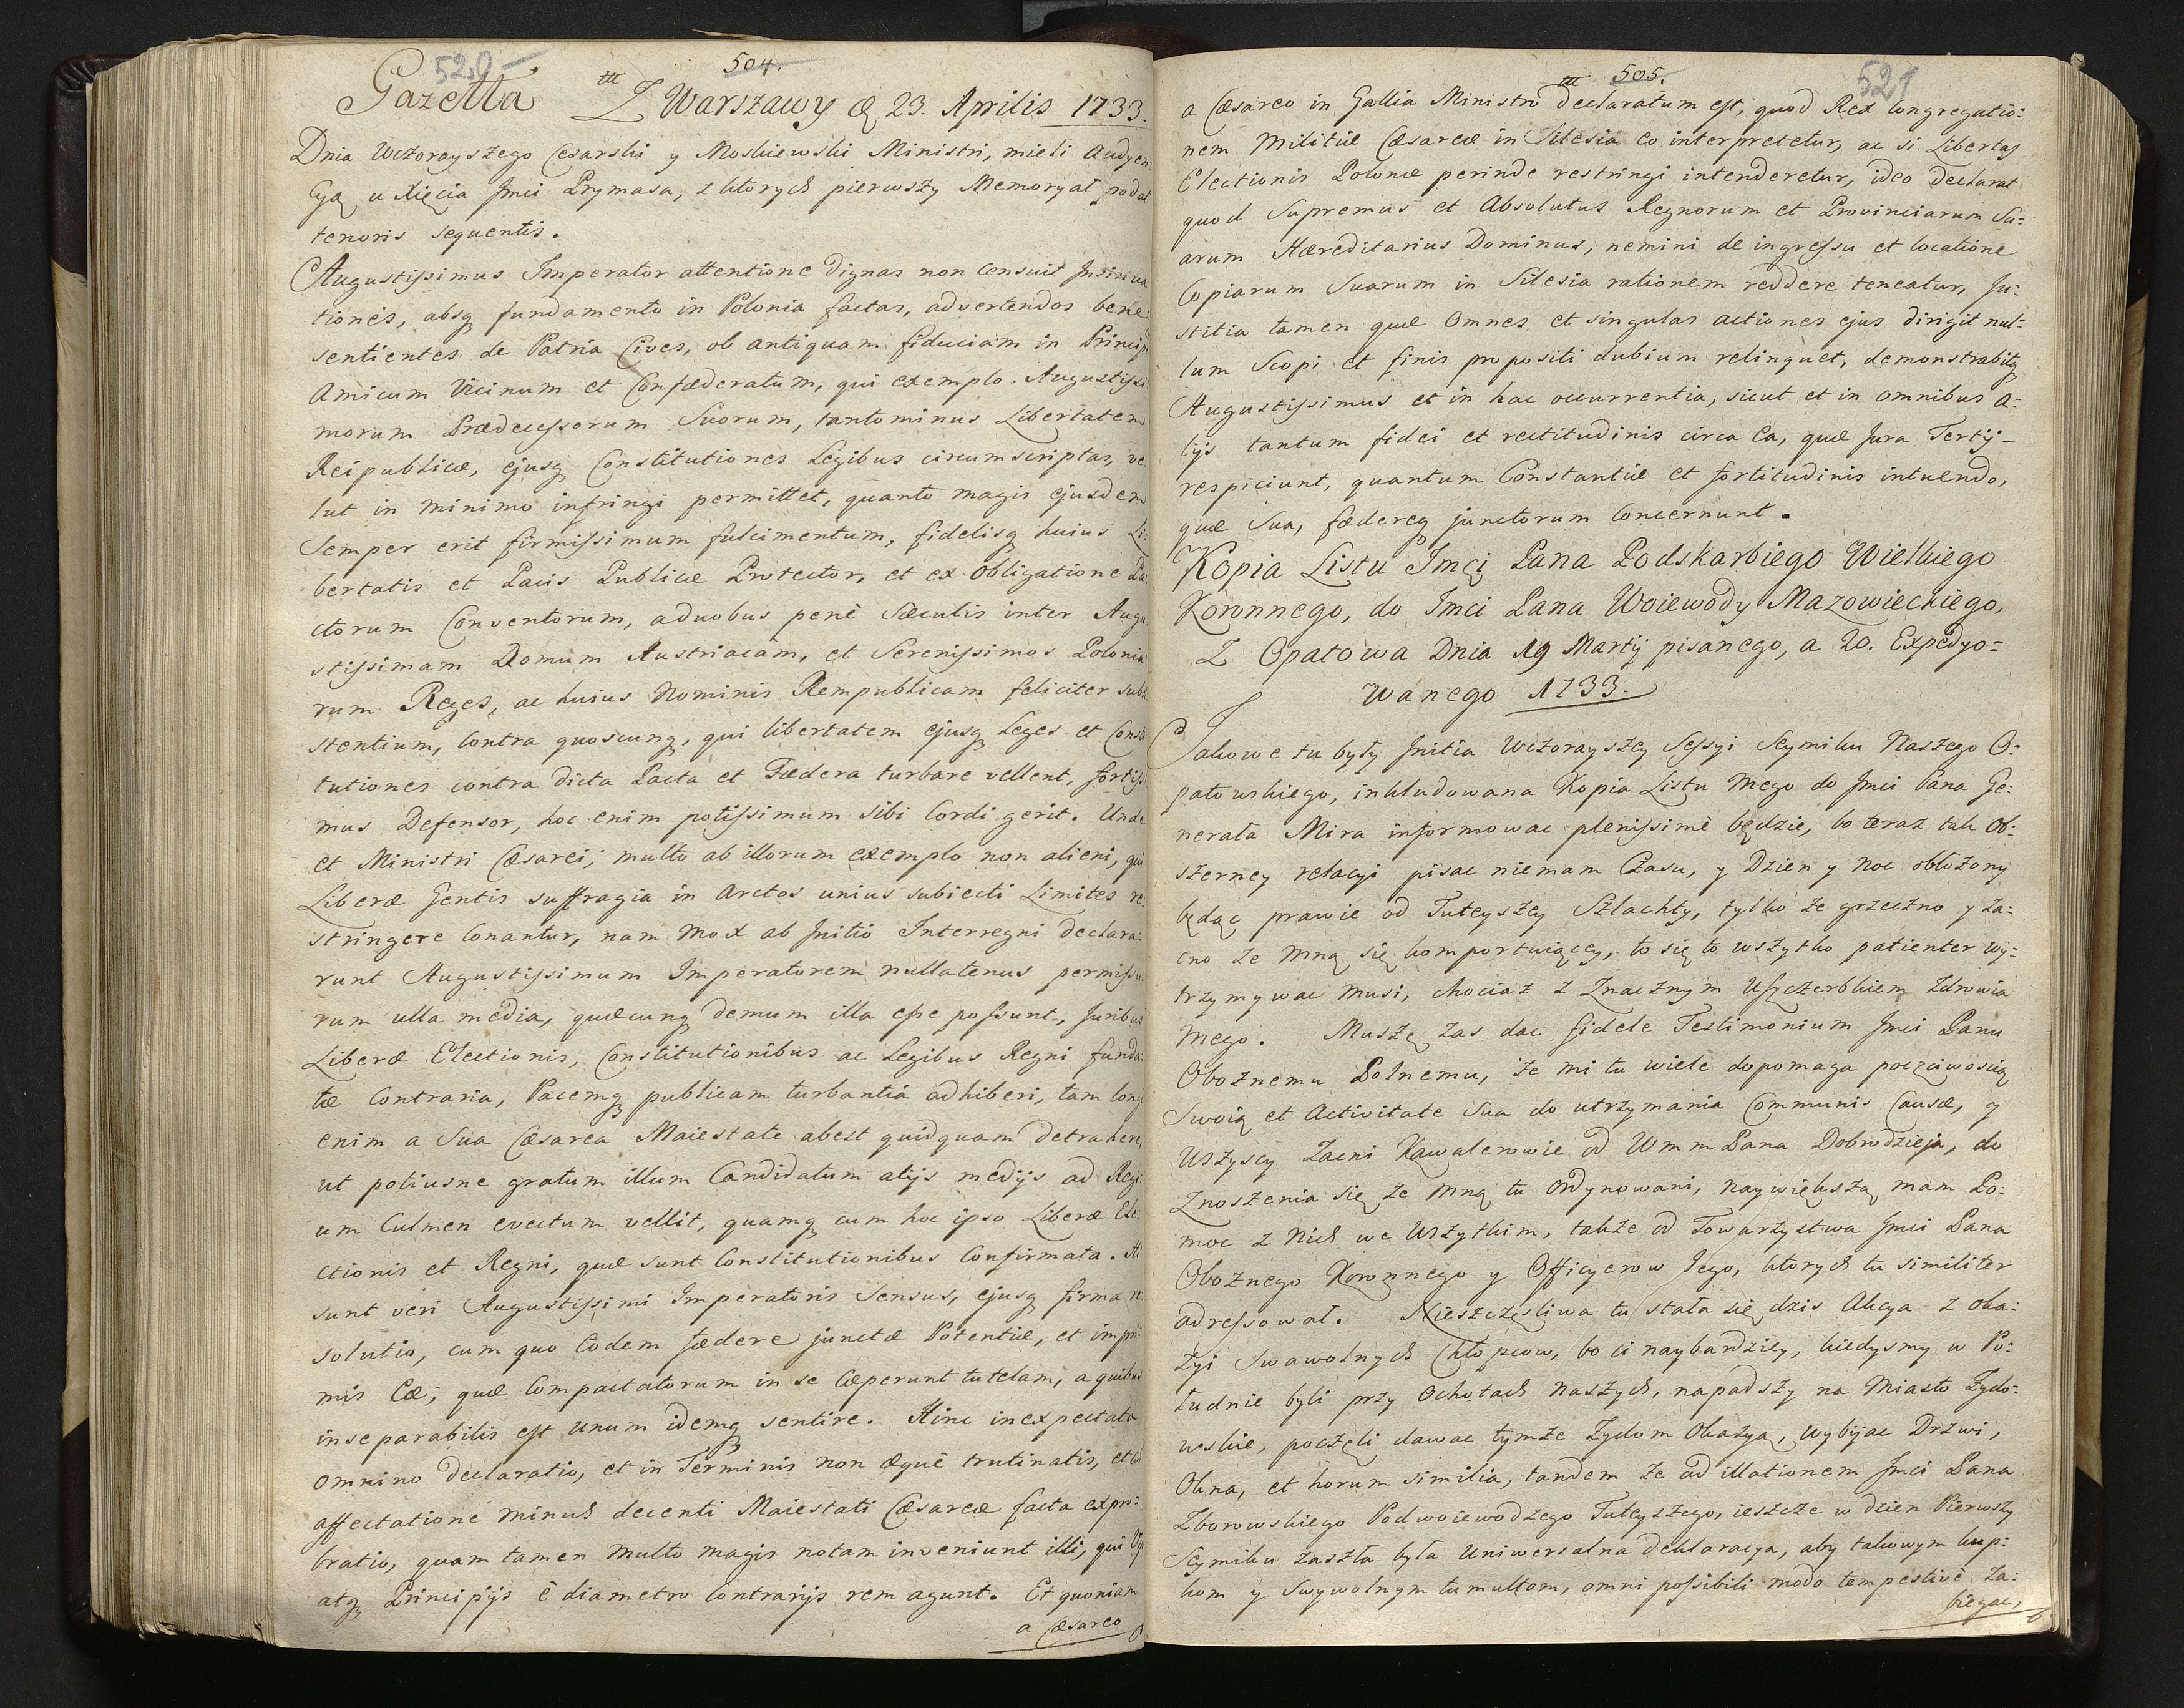 520
504.
Gazetta Z Warszawy d 23. Aprilis 1733.
Dnia Wczorayszego Cesarski y Moskiewski Ministri, mieli Audyen:
cyą u Xięcia Jmci Prymasa, z ktorych pierwszy Memoryał podał
tenoris sequentis.
Augustissimus Imperator attentione dignas non censuit Insinua
tiones, absq fundamento in Polonia factas, advertendos bene
sentientes de Patria Cives, ob antiquam fiduciam in Principe
Amicum Vicinum et Confæderatum, qui exemplo Augustissi
morum Prædecessorum Suorum, tantominus Libertatem
Reipublicæ, ejusq Constitutiones Legibus circumscriptas, ve
lut in minimo infringi permittet, quanto magis ejusdem
Semper erit firmissimum fulcimentum, fidelisq huius Li:
bertatis et Pacis Publicæ Protector, et ex obligatione Pa:
ctorum Conventorum, aduobus penè Sæculis inter Augu
stissimam Domum Austriacam, et Serenissimos Polonia
rum Reges, ac huius Nominis Rempublicam feliciter subsi
stentium, contra quoscunq, qui libertatem ejusq Leges et Consti
tutiones contra dicta Pacta et Fædera turbare vellent, fortissi
mus Defensor, hoc enim potissimum sibi Cordi gerit. Unde
et Ministri Cæsarei, multo ab illorum exemplo non alieni, qui
Liberæ Gentis suffragia in Arctos unius subiecti Limites re:
stringere Conantur, nam mox ab Initio Interregni declara:
runt Augustissimum Imperatorem nullatenus permissu
rum ulla media, quæcunq demum illa esse possunt, Juribus
Liberæ Electionis, Constitutionibus ac Legibus Regni funda
tæ Contraria, Pacemq publicam turbantia adhiberi, tam longe
enim a Sua Cæsarea Maiestate abest quidquam detrahere,
ut potiusne gratum illum Candidatum alijs medijs ad Regi
um Culmen evectum vellit, quamq cum hoc ipso Liberæ Ele:
ctionis et Regni, quæ sunt Constitutionibus Confirmata. Hi
sunt veri Augustissimi Imperatoris Sensus, ejusq firma re
solutio, cum quo Eodem fædere junctæ Potentiæ, et impri:
mis Eæ, quæ Compactatorum in se Cæperunt tutelam, a quibus
inseparabilis est unum idemq sentire. Hinc inexpectata
omnino declaratio, et in Terminis non æquè trutinatis, et cū
affectatione minus decenti Maiestati Cæsareæ facta expro:
bratio, quam tamen multo magis notam inveniunt illi, qui
atq Principijs è diametro Contrarijs rem agunt. Et quoniam
a Cæsareo
505.
521
a Cæsareo in Gallia Ministro declaratum est, quod Rex Congregatio:
nem Militiæ Cæsareæ in Silesia eo interpretetur, ac si Libertas
Electionis Polonæ perinde restringi intenderetur, ideo declarat
quod Supremus et Absolutus Regnorum et Provinciarum Su:
arum Hæreditarius Dominus, nemini de ingressu et locatione
Copiarum Suarum in Silesia rationem reddere teneatur, Ju:
stitia tamen quæ Omnes et singulas actiones ejus dirigit nul:
lum Scopi et finis propositi dubium relinquet, demonstrabitq
Augustissimus et in hac occurrentia, sicut et in omnibus a:
lijs tantum fidei et rectitudinis circa Ea, quæ Jura Tertij
respiciunt, quantum Constantiæ et fortitudinis intuendo,
quæ Sua, fædereq junctorum Concernunt.
Kopia Listu Jmci Pana Podskarbiego Wielkiego
Koronnego, do Jmci Pana Woiewody Mazowieckiego,
Z Opatowa Dnia 19 Martij pisanego, a 20. Expedyo=
wanego 1733.
Takowe tu były Initia Wczorayszey Sessyi Seymiku Naszego O:
patowskiego, inkludowana Kopia Listu mego do Jmci Pana Ge:
nerała Mira informowac plenissimè będzie, bo teraz tak ob:
szerney relacyi pisac niemam Czasu, y Dzien y Noc obłożony
będąc prawie od Tuteyszey Szlachty, tylko że grzeczno y za:
cno ze mną się komportuiącey, to się to wszytko patienter wy:
trzymywac musi, chociaż z Znacznym Uszczerbkiem Zdrowia
mego. Muszę zas dac fidele Testimonium Jmci Panu
Oboznemu Polnemu, że mi tu wiele dopomaga poczciwoscią
Swoią et Activitate Sua do utrzymania Communis Causæ, y
Wszyscy Zacni Kawalerowie od Wm m Pana Dobrodzieja, do
Znoszenia się ze mną tu Ordynowani, naywiększą mam Po:
moc z Nich we Wszytkim, także od Towarzystwa Jmci Pana
Oboznego Koronnego y Officyerow Jego, ktorych tu similiter
adressował. Nieszczęsliwa tu stała się dzis Akcya z oka:
zyi Swawolnych Chłopcow, bo ci naybardziey, kiedysmy w Po:
łudnie byli przy Ochotach Naszych, napadszy na Miasto Zydo:
wskie, poczęli dawac tymże Zydom Okazyą, wybijac Drzwi,
Okna, et horum similia, tandem że ad illationem Jmci Pana
Zborowskiego Podwoiewodzego Tuteyszego, ieszcze w dzien Pierwszy
Seymiku zaszła była Uniwersalna deklaracya, aby takowym kup:
kom y Swywolnym tumultom, omni possibili modo tempestivè za:
biegac,